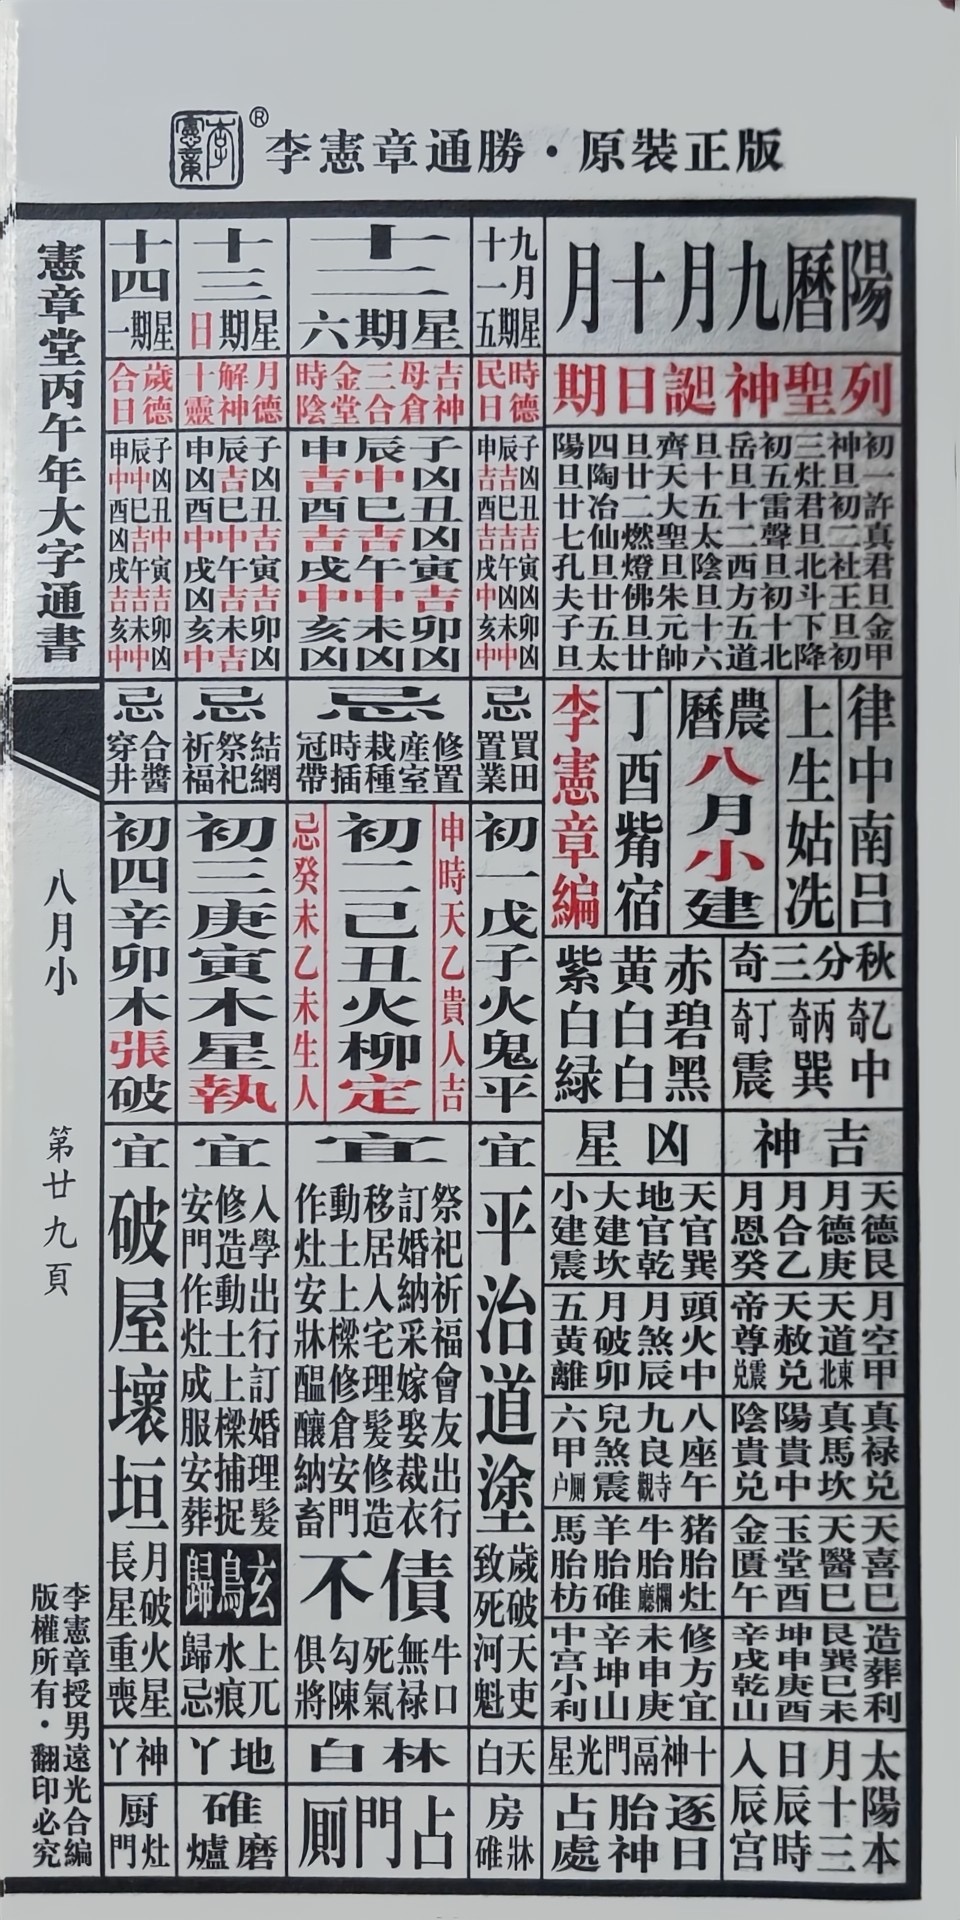 李憲章
李憲章通勝·原裝正版
陽曆九月十月
列聖神誕日期
初一許真君旦金甲
神旦初二社王旦初
三灶君旦北斗下降
初五雷聲旦初十北
岳旦十二西方五道
旦十五太陰旦十六
齊天大聖旦朱元帥
旦廿二燃燈佛旦廿
四陶冶仙旦廿五太
陽旦廿七孔夫子旦
律中南呂
上生姑洗
農曆
八月小建
丁酉觜宿
李憲章編
秋分三奇
乙奇中
丙奇巽
丁奇震
赤碧黑
黃白白
紫白綠
吉神
天德艮
月德庚
月合乙
月恩癸
月空甲
天道東北
天赦兌
帝尊震兌
真祿兌
真馬坎
陽貴中
陰貴兌
天喜巳
天醫巳
玉堂酉
金匱午
造葬利
艮巽巳未
坤申庚酉
辛戌乾山
太陽本
月十三
日辰時
入辰宮
凶星
天官巽
地官乾
大建坎
小建震
頭火中
月煞辰
月破卯
五黃離
八座午
九良寺觀
兒煞震
六甲厠户
猪胎灶
牛胎欄廳
羊胎碓
馬胎枋
修方宜
未申庚
辛坤山
中宮小利
十神鬲門光星
逐日胎神占處
九月
十一
星期五
時德
民日
子凶丑吉寅凶卯凶
辰吉巳吉午凶未中
申吉酉吉戌中亥中
忌
買田
置業
初一戊子火鬼平
宜
平治道塗
歲破
致死
天吏
河魁
天白
房牀碓
十二
星期六
吉神
母倉
三合
金堂
時陰
子凶丑凶寅吉卯凶
辰中巳吉午中未凶
申吉酉吉戌中亥凶
忌
修置
產室
栽種
時插
冠帶
申時天乙貴人吉
初二己丑火柳定
忌癸未乙未生人
宜
祭祀祈福會友出行
訂婚納采嫁娶裁衣
移居入宅理髮修造
動土上樑修倉安門
作灶安牀醖釀納畜
債不
牛口
無祿
死氣
勾陳
俱將
林白
占門厠
十三
星期日
月德
解神
十靈
子凶丑吉寅吉卯凶
辰吉巳中午吉未吉
申凶酉中戌凶亥中
忌
結網
祭祀
祈福
初三庚寅木星執
宜
入學出行訂婚理髮
修造動土上樑捕捉
安門作灶成服安葬
玄鳥歸
上兀
水痕
歸忌
地丫
碓磨爐
十四
星期一
歲德
合日
子凶丑中寅吉卯凶
辰中巳吉午吉未中
申中酉凶戌吉亥中
忌
合醬
穿井
初四辛卯木張破
宜
破屋壞垣
月破火星
長星重喪
神丫
厨灶門
憲章堂丙午年大字通書
八月小
第廿九頁
李憲章授男遠光合編
版權所有·翻印必究